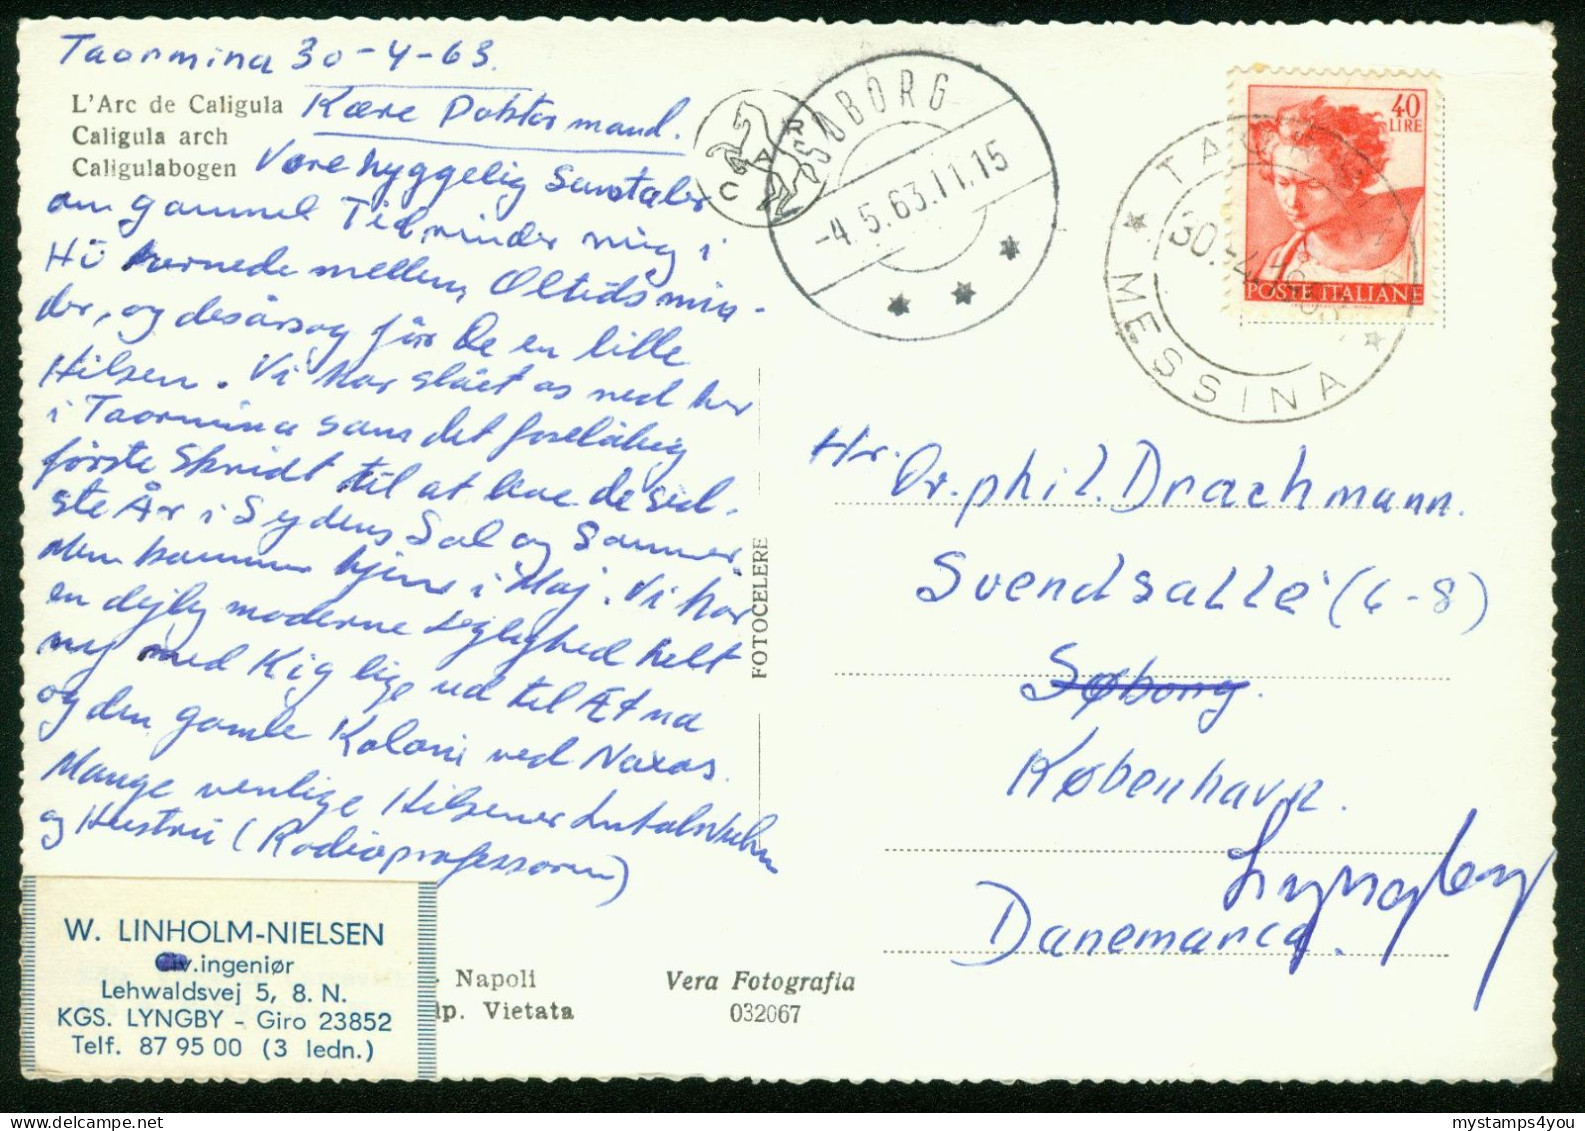 Taormina 30-4-63.
L'Arc de Caligula
Caligula arch
Caligulabogen
Kære Doktormand.
Vore hyggelig Samtaler
om gammel Tid minder mig i
Hö hvernede mellem Oltidsmin-
der, og desårsag får De en lille
Hilsen. Vi har slået os ned her
i Taormina som det foreløbig
første Skridt til at leve de sid-
ste År i Sydens Sol og Sommer,
men kommer hjem i Maj. Vi har
en dejlig moderne Lejlighed helt
ny med Kig lige ud til Ætna
og den gamle Koloni ved Naxos.
Mange venlige Hilsener
og Hustru (Radioprofessoren)
W. LINHOLM-NIELSEN
Civ.ingeniør
Lehwaldsvej 5, 8. N.
KGS. LYNGBY - Giro 23852
Telf. 87 95 00 (3 ledn.)
- Napoli
Vera Fotografia
dip. Vietata
032067
FOTOCELERE
RAC
SØBORG
-4.5.63.11.15
40
LIRE
POSTE ITALIANE
TAORMINA
30.-4.1963
MESSINA
Hr. Dr. phil. Drachmann.
Svendsallé (6-8)
Søborg.
København.
Lyngby
Danemarca.
mystamps4you